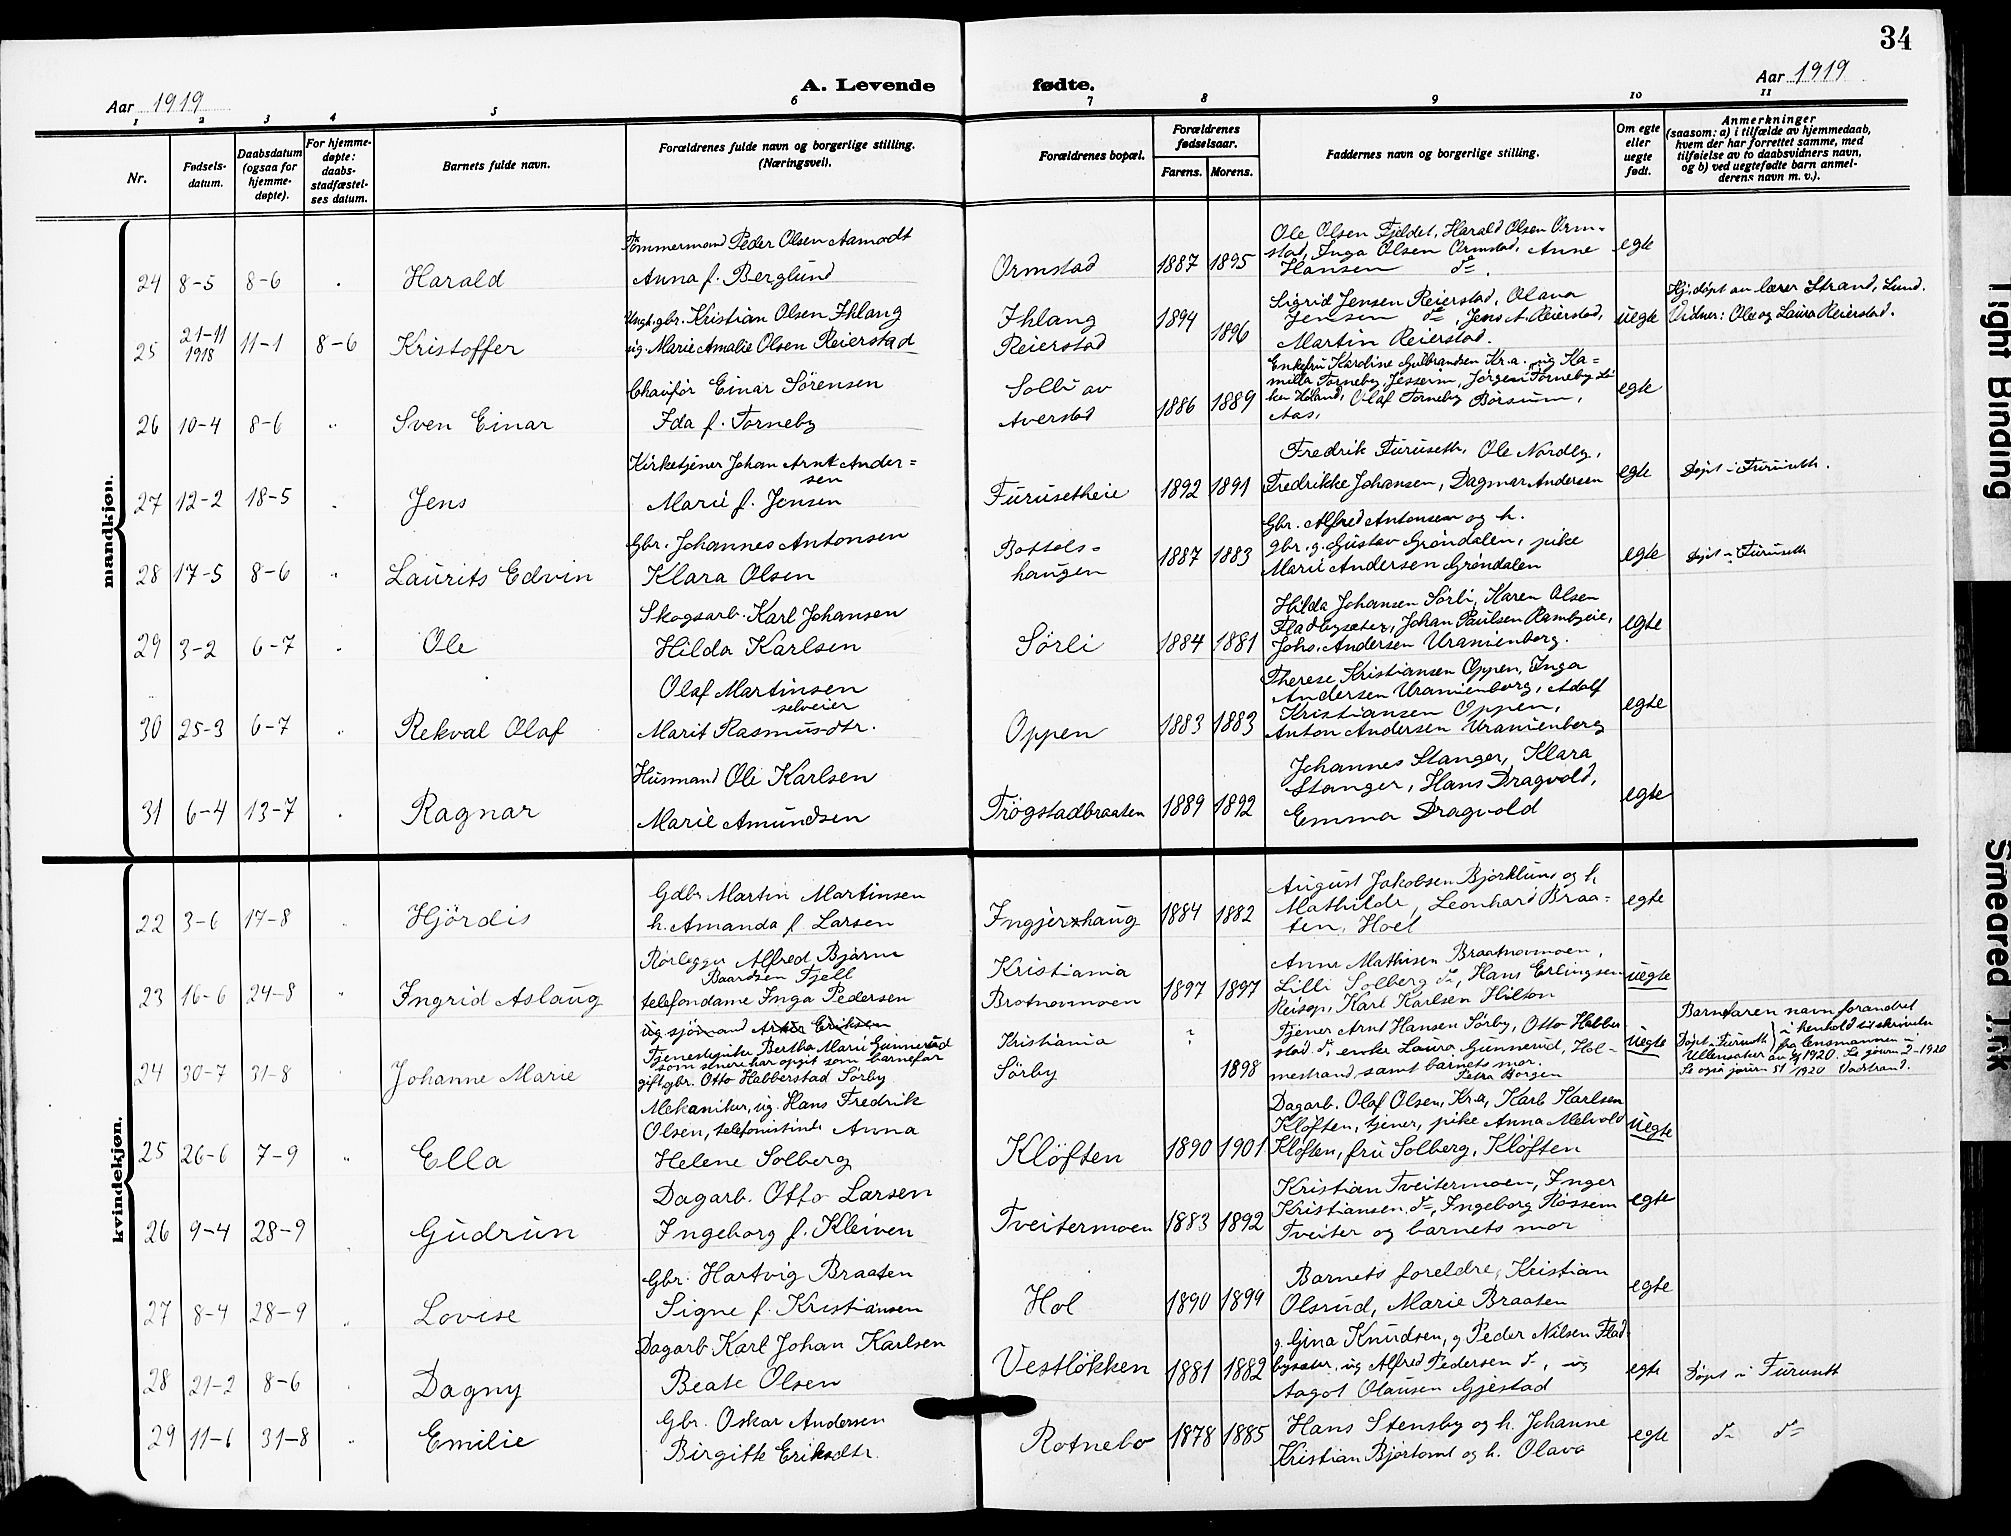 34
Aar 1919
A. Levende fødte.
Aar 1919
1 2 3 4 5 6 7 8 9 10 11
Nr.
Fødsels-
datum.
Daabsdatum
(ogsaa for
hjemme-
døpte).
For hjemme-
døpte:
daabs-
stadfæstel-
ses datum.
Barnets fulde navn.
Forældrenes fulde navn og borgerlige stilling.
(Næringsvei).
Forældrenes bopæl.
Forældrenes
fødselsaar.
Farens. Morens.
Faddernes navn og borgerlige stilling.
Om egte
eller
uegte
født.
Anmerkninger
(saasom: a) i tilfælde av hjemmedaab,
hvem der har forrettet samme, med
tilføielse av to daabsvidners navn,
og b) ved uegtefødte barn anmel-
derens navn m. v.).
mandkjøn.
24 8-5 8-6 Harald
Tømmermand Peder Olsen Aamodt
Anna f. Berglund
Ormstad
1887 1895
Ole Olsen Fjeldet, Harald Olsen Orm-
stad, Inga Olsen Ormstad, Anne
Hansen do.
egte
25 21-11 1918 11-1 8-6 Kristoffer
Ungk. gbr. Kristian Olsen Ihlang
ug. Marie Amalie Olsen Reierstad
Ihlang
Reierstad
1894 1896
Sigrid Jensen Reierstad, Olava
Jensen do, Jens A. Reierstad,
Martin Reierstad.
uegte
Hj. døpt av lærer Strand, Lund.
Vidner: Ole og Laura Reierstad.
26 10-4 8-6 Sven Einar
Chaufør Einar Sörensen
Ida f. Torneby
Solli av
Averstad
1886 1889
Enkefru Karoline Gulbrandsen Kr.a. ug Ka-
milla Torneby, Jesseim, Jörgen Torneby
Höland, Olaf Torneby Börsum,
Aas.
egte
27 12-2 18-5 Jens
Kirketjener Johan Arnt Ander-
sen
Marie f. Jensen
Furusetheie
1892 1891
Fredrik Furuseth, Ole Nordby,
Fredrikke Johansen, Dagmar Andersen
egte
Döpt i Furuseth.
28 17-5 8-6 Laurits Edvin
Gbr. Johannes Antonsen
Klara Olsen
Bottols-
haugen
1887 1883
Gbr. Alfred Antonsen og h.
gbr. g. Gustav Gröndalen, pike
Marie Andersen Gröndalen
egte
Döpt i Furuseth
29 3-2 6-7 Ole
Skogsarb. Karl Johansen
Hilda Karlsen
Sörli
1884 1881
Hilda Johansen Sörli, Karen Olsen
Fladbysæter, Johan Paulsen Rambjeie,
Johs. Andersen Uranienborg.
egte
30 25-3 6-7 Rekval Olaf
Olaf Martinsen
selveier
Marit Rasmusdtr.
Oppen
1883 1883
Therese Kristiansen Oppen, Inga
Andersen Uranienborg, Adolf
Kristiansen Oppen,
Anton Andersen Uranienborg
egte
31 6-4 13-7 Ragnar
Husmand Ole Karlsen
Marie Amundsen
Trögstadbraaten
1889 1892
Johannes Stanger, Klara
Stanger, Hans Dragvold,
Emma Dragvold
egte
kvindekjøn.
22 3-6 17-8 Hjördis
Gdbr Martin Martinsen
h. Amanda f. Larsen
Ingjerhaug
1884 1882
August Jakobsen Bjørklund og h.
Mathilde, Leonhard Braa-
ten, Hoel
egte
23 16-6 24-8 Ingrid Aslaug
Rörlegger Alfred Bjarne
Baardsen Fjell
telefondame Inga Pedersen
Kristiania
Brotnovmoen
1897 1897
Anna Mathisen Braatnovmoen,
Lilli Solberg do, Hans Erlingsen
Reisop, Karl Karlsen Hilton
uegte
24 30-7 31-8 Johanne Marie
ug sjömand Eriksen
Tjenestepike Bertha Marie Gunnerud
som senere har opgit som barnefar
gift gbr. Otto Habberstad Sörby
Kristiania
Sörby
? 1898
Tjener Arnt Hansen Sörby, Otto Habber-
stad do, enke Laura Gunnerud, Hol-
mestrand, samt barnets mor
Petra Borgen
uegte
Barnefaren navn forandret
Döpt i Furuseth i henhold til skrivelse
fra lensmannen i
Ullensaker av 1920. Se journ 2-1920
Se også journ 51/1920 Vadstrand.
25 26-6 7-9 Ella
Mekaniker, ug. Hans Fredrik
Olsen, telefonistinde Anna
Helene Solberg
Klöften
1890 1901
Dagarb. Olaf Olsen, Kr.a, Karl Karlsen
Klöften, tjener, pike Anna Melvold
Klöften, fru Solberg, Klöften
uegte
26 9-4 28-9 Gudrun
Dagarb. Otto Larsen
Ingeborg f. Kleiven
Tveitermoen
1883 1892
Kristian Tveitermoen, Inger
Kristiansen do, Ingeborg Rössem
Tveiter og barnets mor
egte
27 8-4 28-9 Lovise
Gbr. Hartvig Braaten
Signe f. Kristiansen
Hol
1890 1899
Barnets foreldre, Kristian
Olsrud, Marie Braaten
egte
28 21-2 8-6 Dagny
Dagarb Karl Johan Karlsen
Beate Olsen
Vestlökken
1881 1882
g. Gina Knudsen, g Peder Nilsen Flad-
bysæter, ug Alfred Pedersen do, ug
Aagot Olausen Gjestad
egte
Döpt i Furuseth
29 11-6 31-8 Emilie
Gbr. Oskar Andersen
Birgitte Eriksdtr.
Rotnebo
1878 1885
Hans Stensby og h. Johanne
Kristian Bjørtomt og h. Olava
egte
do do
Tight Binding
Smeared Ink